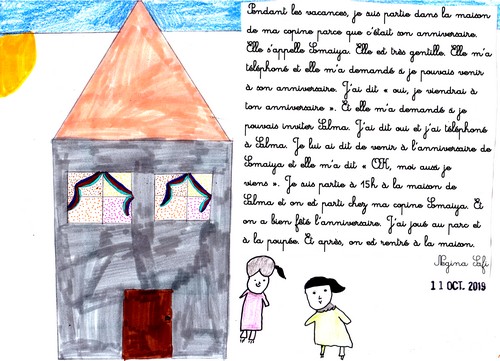 Pendant les vacances, je suis partie dans la maison
de ma copine parce que c'était son anniversaire.
Elle s'appelle Somaiya. Elle est très gentille. Elle m'a
téléphoné et elle m'a demandé si je pouvais venir
à son anniversaire. J'ai dit « oui, je viendrai à
ton anniversaire ». Et elle m'a demandé si je
pouvais inviter Salma. J'ai dit oui et j'ai téléphoné
à Salma. Je lui ai dit de venir à l'anniversaire de
Somaiya et elle m'a dit « OH, moi aussi je
viens ». Je suis partie à 15h à la maison de
Salma et on est parti chez ma copine Somaiya. Et
on a bien fêté l'anniversaire. J'ai joué au parc et
à la poupée. Et après, on est rentré à la maison.
Negina Safi
11 OCT. 2019